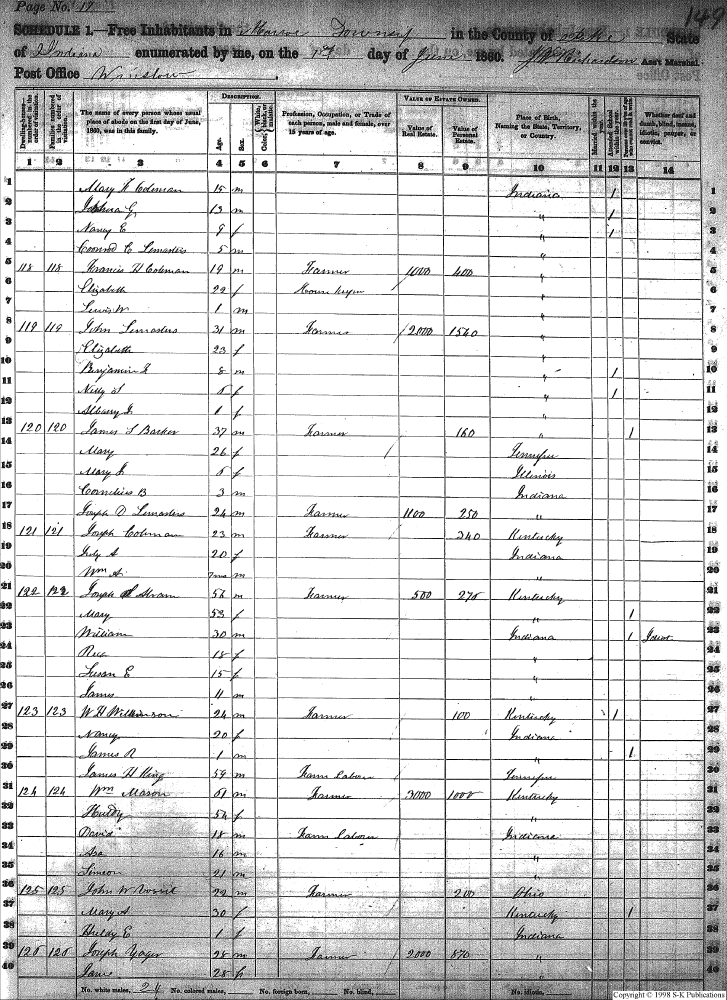 Page No. 17
SCHEDULE 1.—Free Inhabitants in Township in the County of Pike State
of Indiana enumerated by me, on the day of June 1860. Richardson Ass't Marshal
Post Office Winslow
Dwelling-houses— numbered in the order of visitation.
Families numbered in the order of visitation.
The name of every person whose usual place of abode on the first day of June, 1860, was in this family.
DESCRIPTION.
Age.
Sex.
Color, White, black, or mulatto.
Profession, Occupation, or Trade of each person, male and female, over 15 years of age.
VALUE OF ESTATE OWNED.
Value of Real Estate.
Value of Personal Estate.
Place of Birth, Naming the State, Territory, or Country.
Married within the year.
Attended School within the year.
Whether deaf and dumb, blind, insane, idiotic, pauper, or convict.
1 2 3 4 5 6 7 8 9 10 11 12 13 14
1 15 m Indiana / 1
2 Joshua G 13 m " / 2
3 Nancy E 9 f " / 3
4 Conrad C Lemasters 5 m " 4
5 118 118 Francis H Coleman 19 m Farmer 1000 400 " 5
6 Elizabeth 22 f House keeper " 6
7 Lewis W 1 m " 7
8 119 119 John Lemasters 31 m Farmer 2000 1540 " 8
9 Elizabeth 23 f " 9
10 Benjamin F 8 m " / 10
11 f " / 11
12 1 f " 12
13 120 120 James S Barker 37 m Farmer 160 " / 13
14 Mary 26 f Tennessee 14
15 Mary J f Illinois 15
16 Cornelius B 3 m Indiana 16
17 Joseph D Lemasters 24 m Farmer 1100 250 " 17
18 121 121 Joseph Coleman 23 m Farmer 340 Kentucky 18
19 A 20 f Indiana 19
20 Wm A 7 mo m " 20
21 122 122 Joseph 56 m Farmer 500 Kentucky 21
22 Mary 53 f " / 22
23 William 30 m Indiana / Idiot 23
24 18 f " 24
25 Susan E 15 f " 25
26 James 11 m " 26
27 123 123 W H Wilkinson 24 m Farmer 100 Kentucky / 27
28 Nancy 20 f Indiana 28
29 James R 1 m " / 29
30 James H King 59 m Farm Laborer Tennessee 30
31 124 124 Wm Mason 61 m Farmer 3000 1000 Kentucky 31
32 Huldy 54 f " 32
33 David 18 m Farm Laborer Indiana 33
34 Asa 16 m " 34
35 Simeon 21 m " 35
36 125 125 John W 22 m Farmer 200 Ohio 36
37 Mary A 30 f Kentucky / 37
38 Huldy E 1 f Indiana 38
39 126 126 Joseph Yager 28 m Farmer 2000 870 " 39
40 Jane 28 f " 40
No. white males, 24 No. colored males, No. foreign born, No. blind, No. idiotic,
Copyright © 1998 S-K Publications